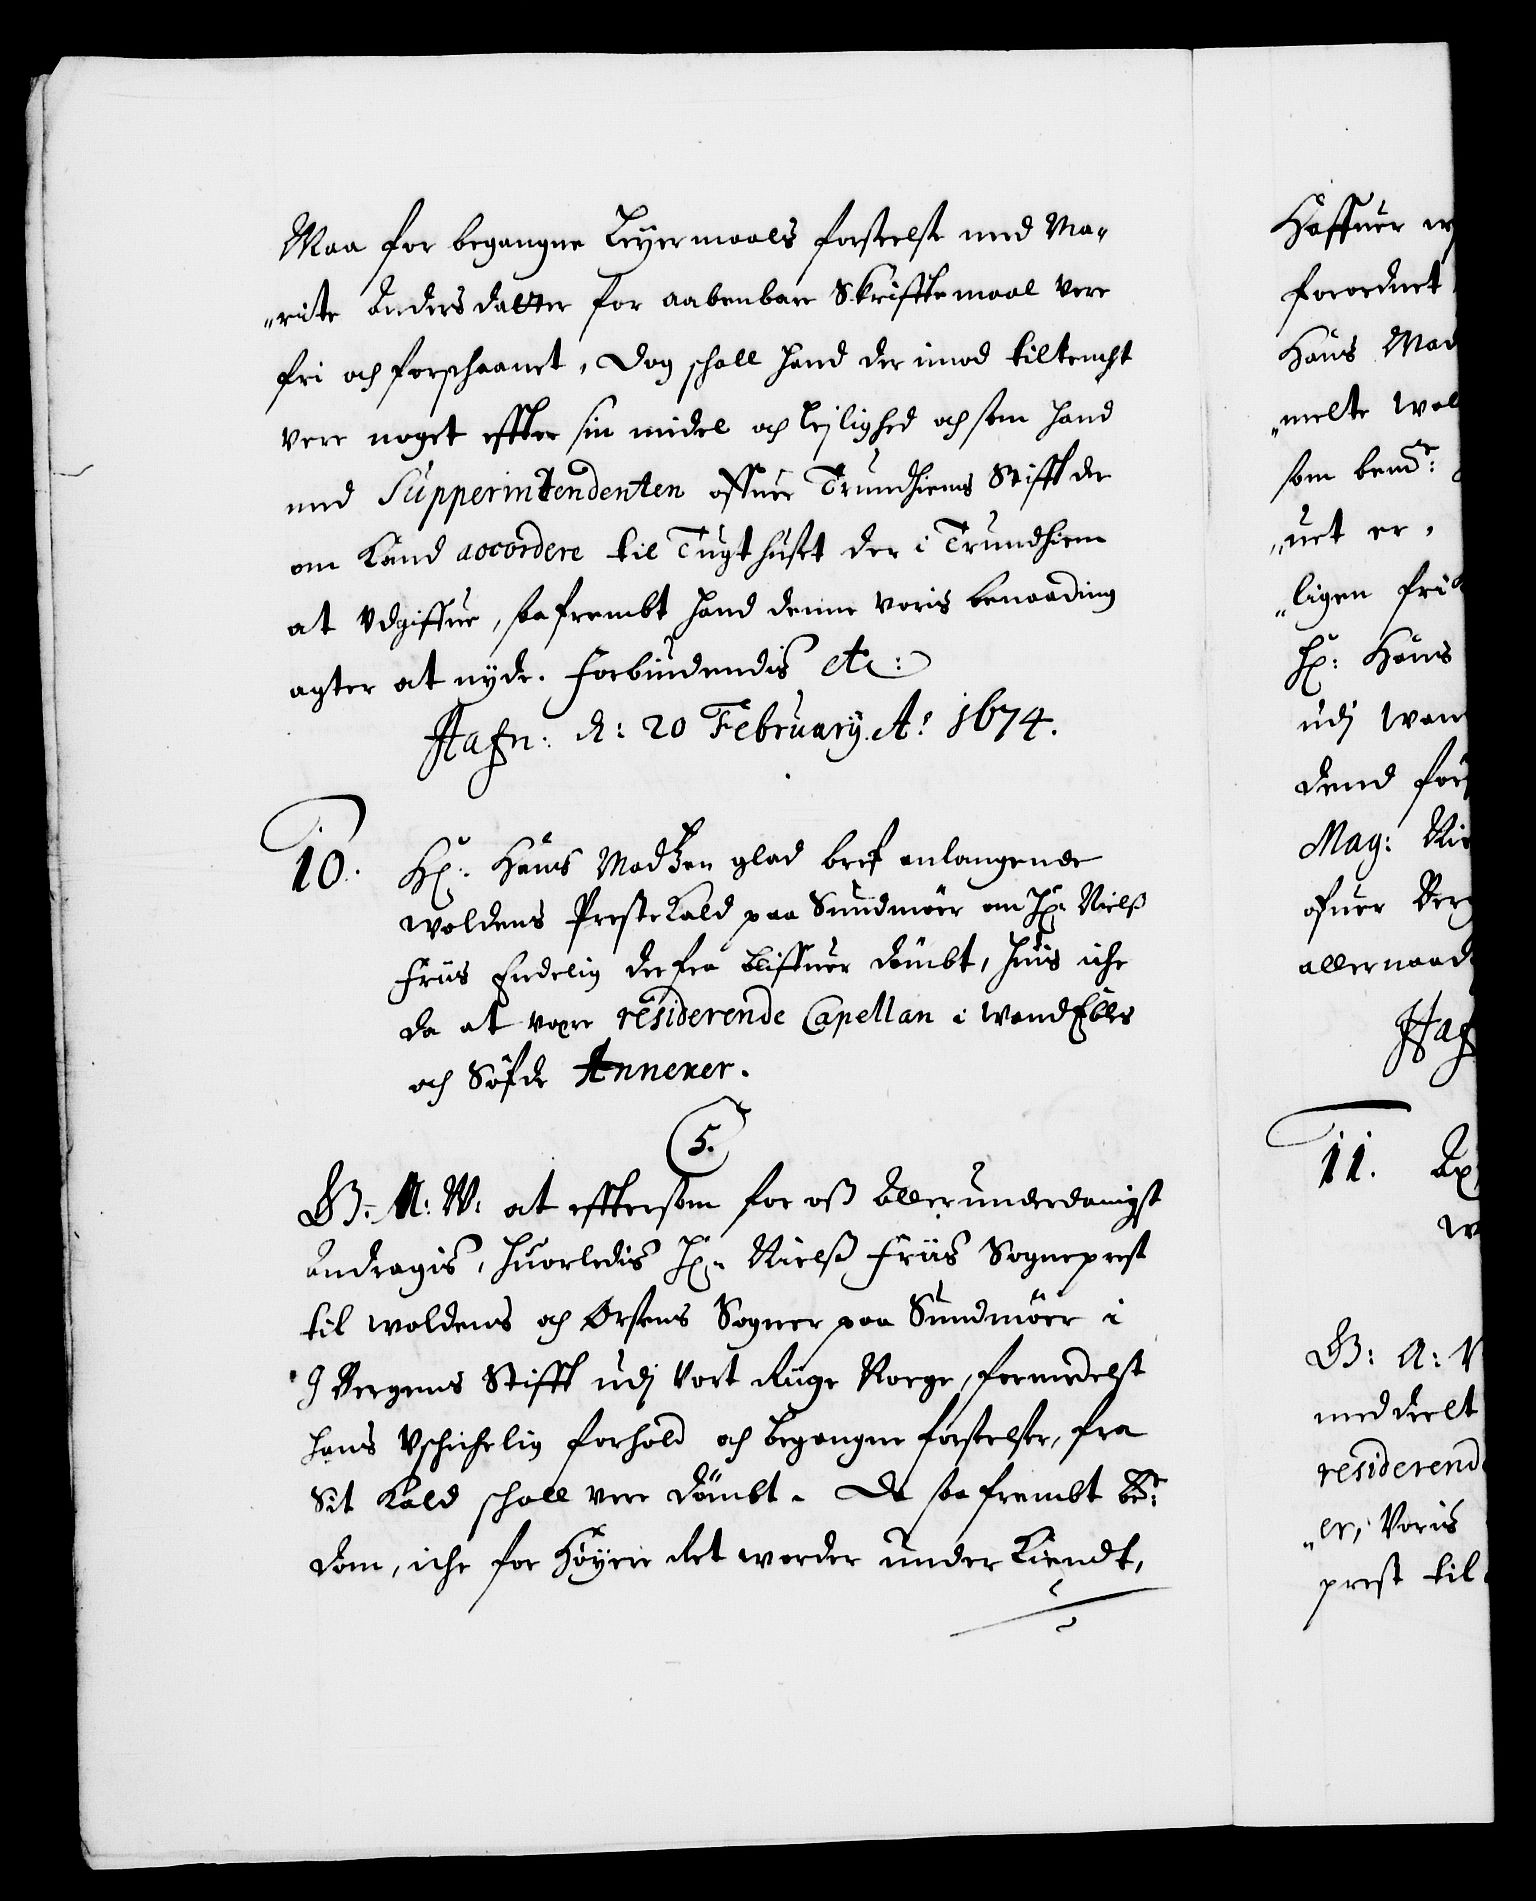 Maa for begangne Leyermaals forseelse med Ma-
„rite Andersdatter for aabenbare Skrifftemaal vere
fri och forschaanet, dog schall hand der imod tiltencht
vere noget effter sin midel och leylighed och som hand
med Supperintendenten offuer Trundhiems Stifft der
om kand accordere til Tugthuset der i Trundhiem
at udgiffue, saafrembt hand denne voris benaading
agter at nyde. Forbiudendis etc:
Hafn: d: 20 February Aº 1674.
10. Hr: Hans Madtzen glad bref anlangende
Woldens Prestekald paa Sundmöer om Hr: Nielß
Friis Endelig derfra bliffuer dömbt, huis iche
da at vere residerende Capellan i Wandelffs
och Söfde Annexer.
5.
G: A: W: at efftersom for oß allerunderdanigst
andragis, huorledis Hr: Nielß Friis Sogneprest
til Woldens och Orstens Sogner paa Sundmöer i
J Bergens Stifft udj vort Riige Norge, formedelst
hans uschichelig forhold och begangne forseelser, fra
Sit Kald schall vere dömbt. Da saafrembt bete:
dom, iche for höyere Ret worder underkiendt,
Haffuer w
forordnet
Hans Mad
„melte Wol
som bemte:
„uet er,
„ligen fri
Hr: Hans
udj Wan
dend for
Mag: Nie
ofuer Berg
allernaad
Haf
11.
W
G: A: W
meddeelt
residerend
„er, voris
prest til